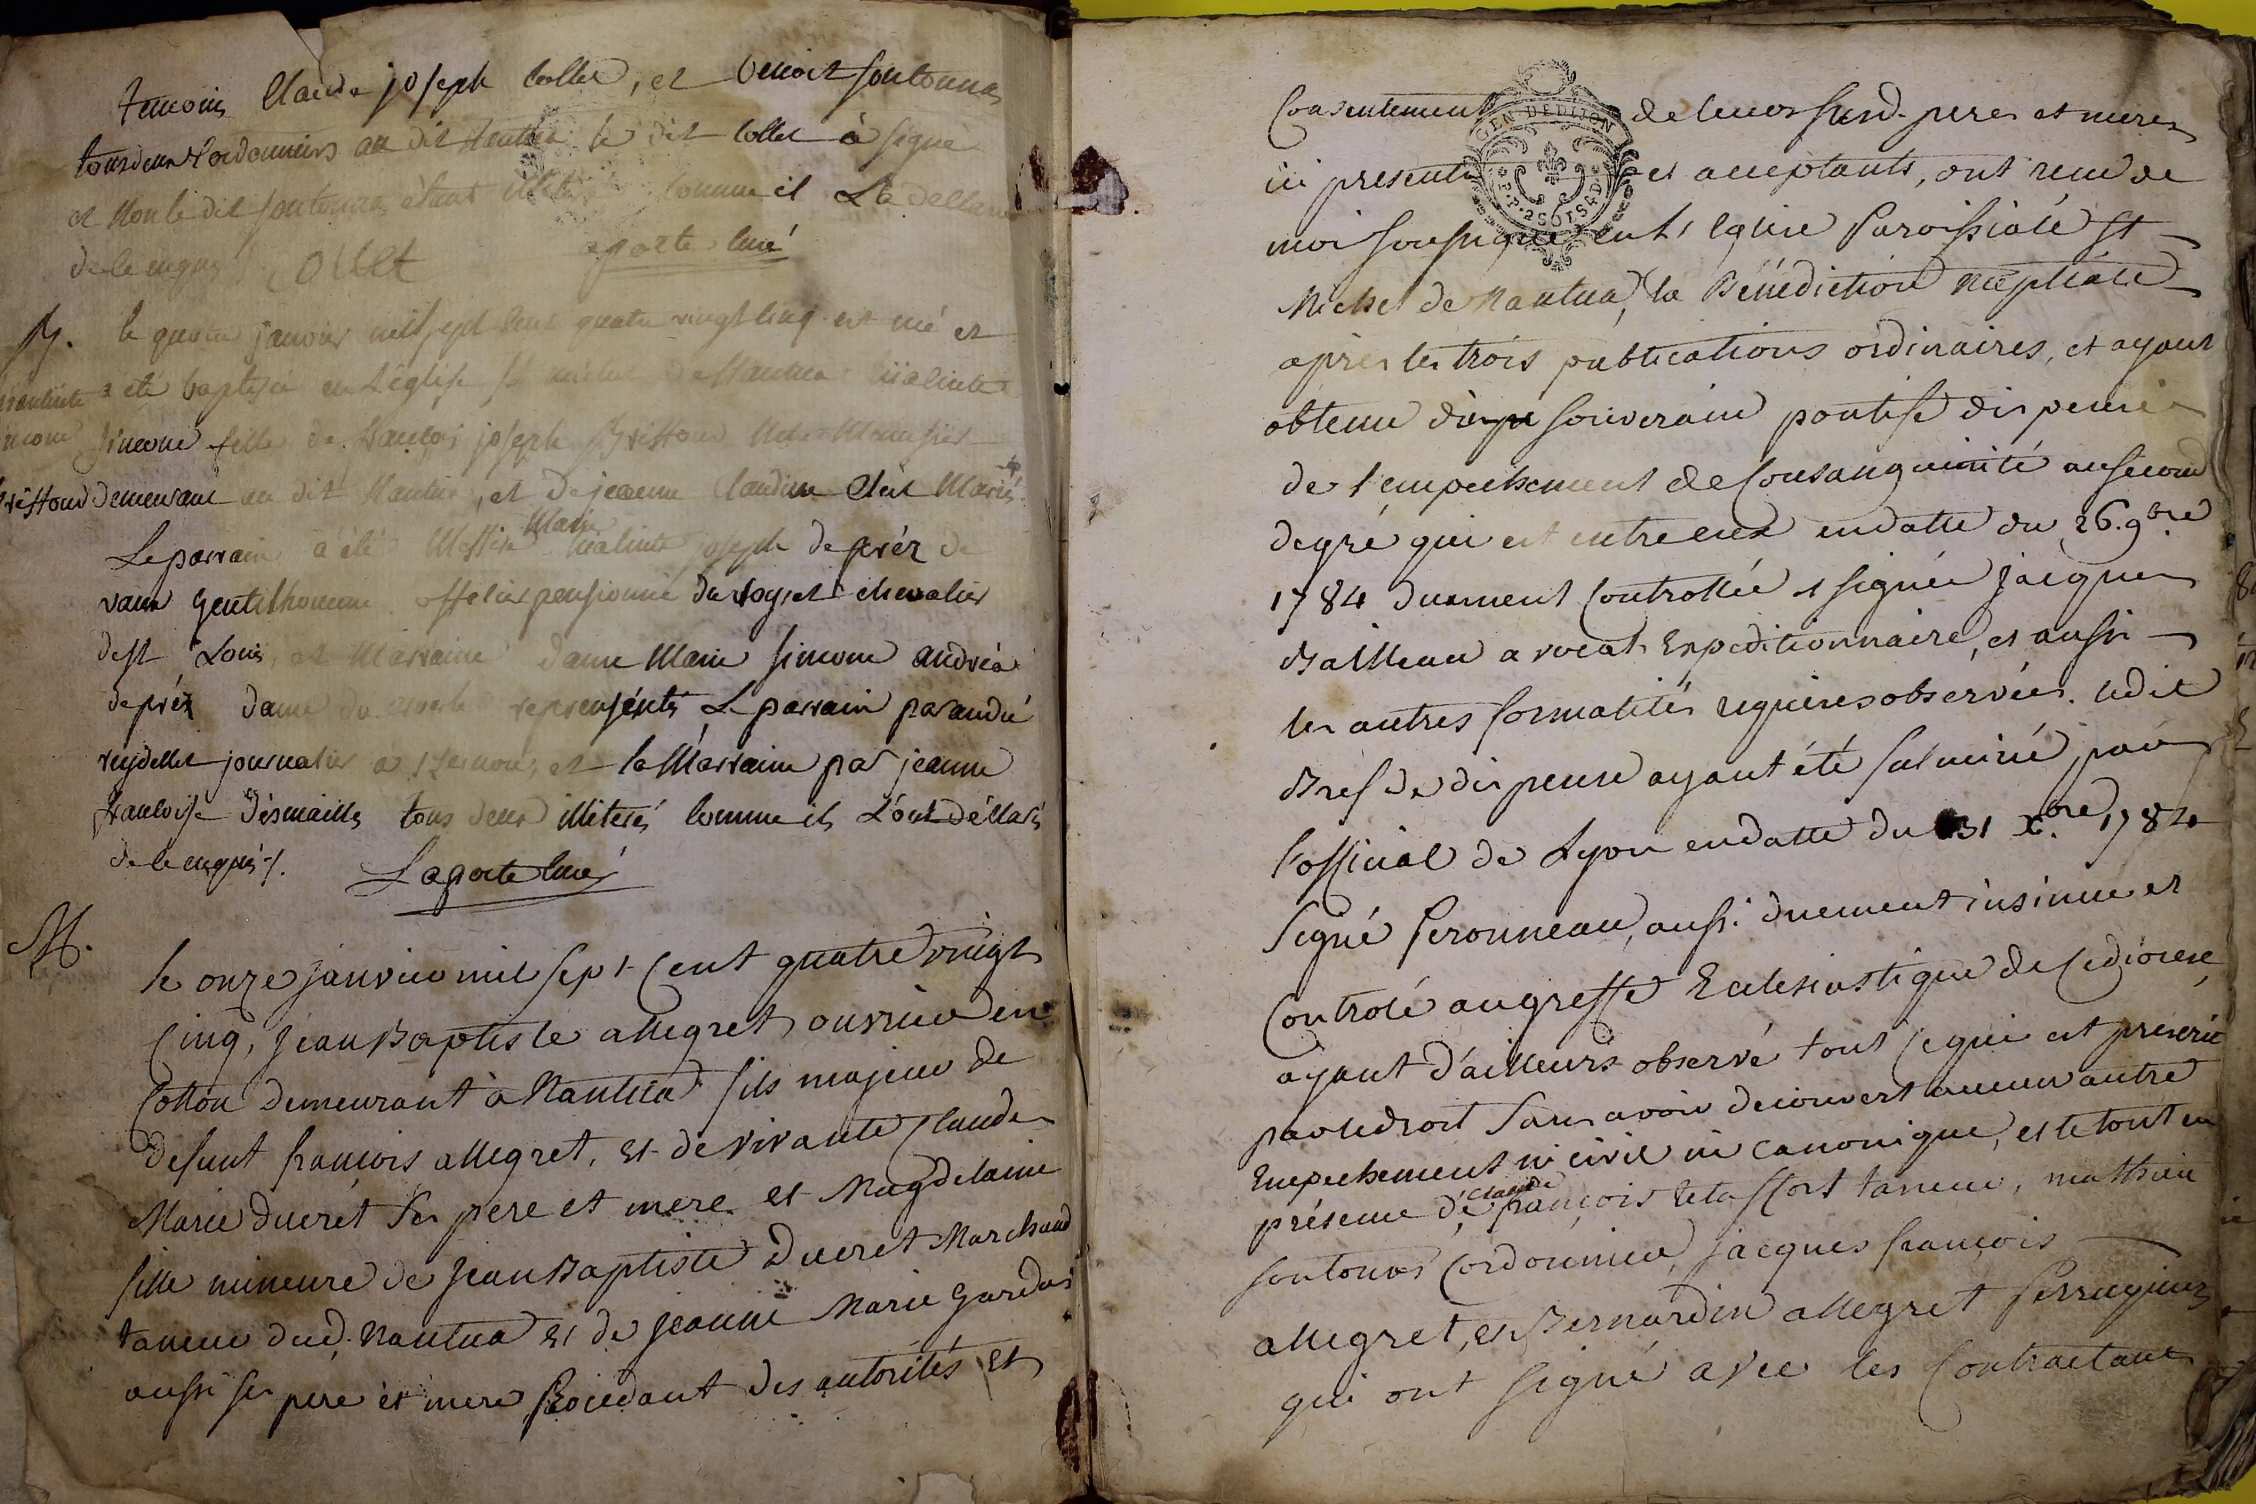 temoins Claude joseph Collet, et benoit sontonnas
tousdeux Cordonniers au dit Nantua le dit Collet à signé
et Non le dit sontonas étant illitéré comme il La déllaré
de ce enquis Collet Laporte curé
B. le janvier mil sept cent quatre vingt cinq est née et
a été baptisée en L'église St michel de Nantua hiacinte
Simone fille de françois joseph Brissoud
demeurant au dit Nantua, et de jeanne Claudine
Le parrain a été Messire Marie hiacinte joseph de préz de
vaux gentilhomme officier pensionné du roy, et chevalier
de st Louis, et Marraine dame Marie simone andréa
depréz dame du représentés Le parrain par andré
reydellet journalier a et la Marraine par jeanne
françoise Désmailles tous deux illiterés comme ils L'ont déllaré
de ce enquis /. Laporte curé
M.
le onze janvier mil sept cent quatre vingt
Cinq, jean Baptiste allegret, ouvrier en
Cotton demeurant à Nantua fils majeur de
defunt françois allegret, et de vivante Claude
Marie ducret ses pere et mere et Magdelaine
fille mineure de jean Baptiste Ducret Marchand
taneur dud. Nantua et de jeanne Marie
aussi ses pere et mere procedant des autorités et
GEN DE DIJON
Consentement de leurs susd. peres et meres
ici presents et acceptants, ont recu de
moi soussigné en l'Eglise Paroissiale st
Michel de Nantua, la Bénédiction nuptiale
apres les trois publications ordinaires, et ayant
obtenu du souverain pontife dispense
de l'empechement de Consanguinité au second
degré qui est entre eux en datte du 26. 9bre
1784 duement Controllée et signée jacques
Bailleau avocat Expeditionnaire, et aussi
les autres formalités requises observées. ledit
Bref de dispense ayant été fulminé par
l'official de Lyon en datte du 31 Xbre 1784
Signé Peronneau, aussi duement insinué et
Controlé au greffe Ecclesiastique de ce diocese
ayant d'ailleurs observé tout ce qui est prescrit
par le droit sans avoir decouvert aucun autre
Empechement ni civil ni canonique, et le tout en
présence de Claude françois taneur, mathieu
sontonas Cordonnier, jacques françois
allegret, et Bernardin allegret Perruquiers
qui ont signé avec les Contractants